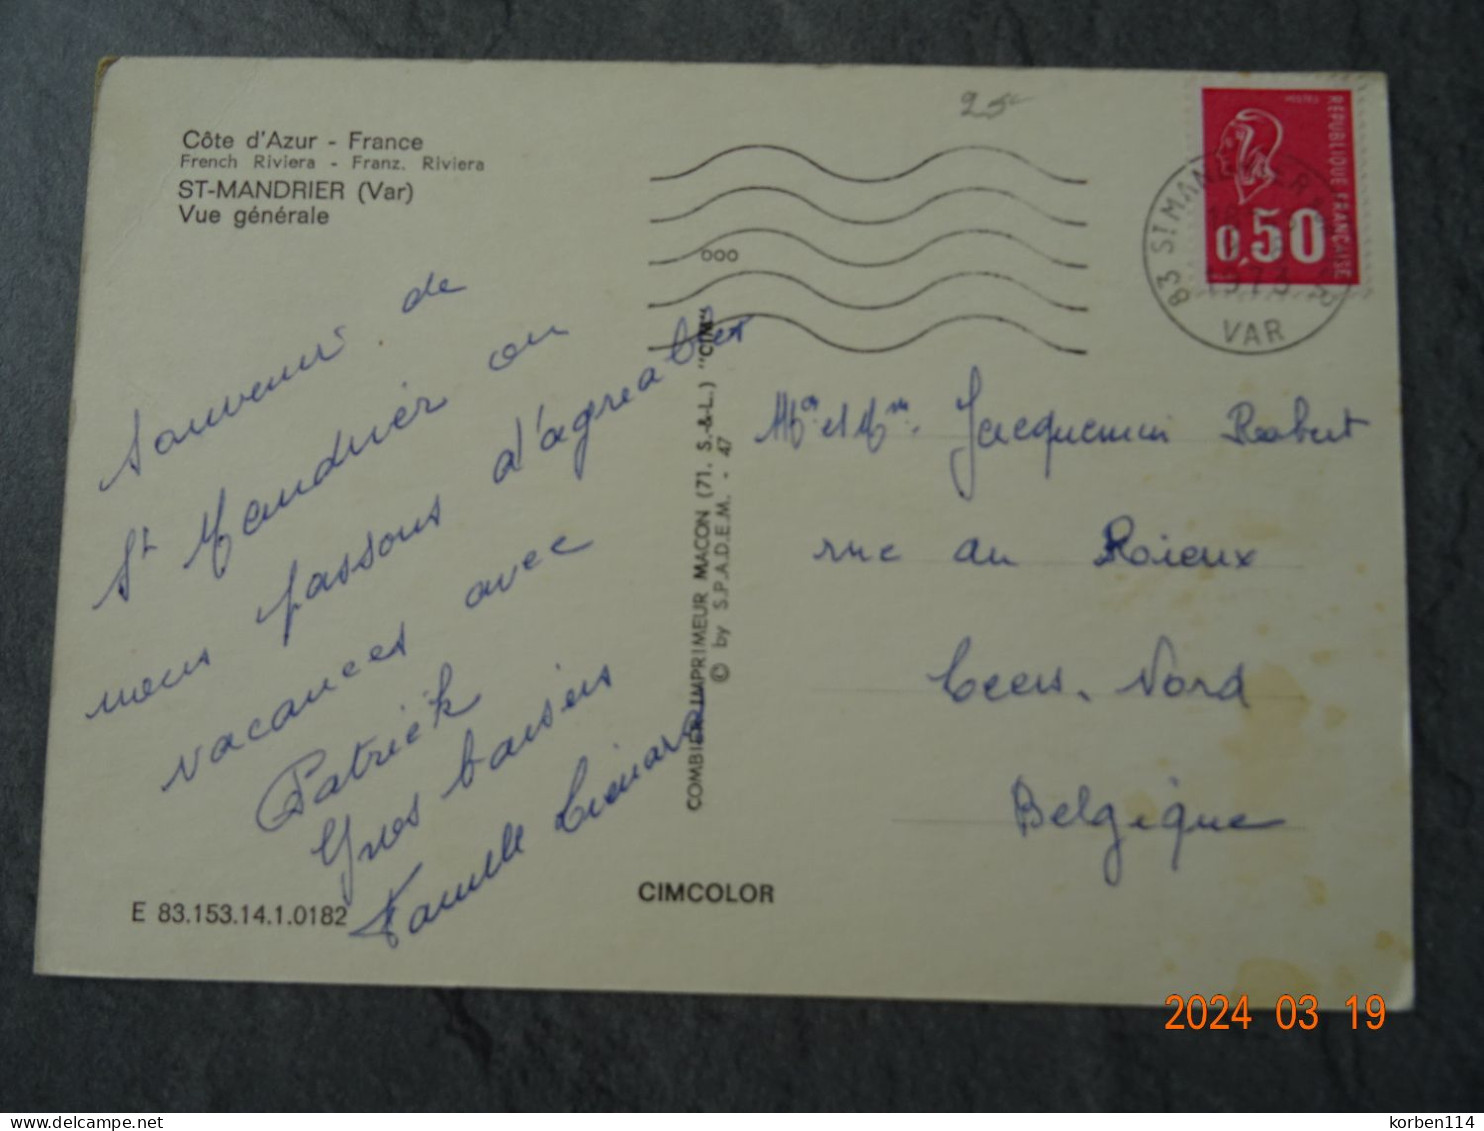 Côte d'Azur - France
French Riviera - Franz. Riviera
ST-MANDRIER (Var)
Vue générale
Souvenir de
St Mandrier ou
nous passons d'agreables
vacances avec
Patrick
Gros baisers
Famille
E 83.153.14.1.0182
COMBIER IMPRIMEUR MACON (71. S.-&-L.) "CIM"
© by S.P.A.D.E.M. - 47
CIMCOLOR
25
000
POSTES
RÉPUBLIQUE FRANÇAISE
0,50
83 ST MANDRIER
18
1973
VAR
Mr et Mme. Jacquemin Robert
rue du Roieux
Leers. Nord
Belgique
2024 03 19
delcampe.net
korben114